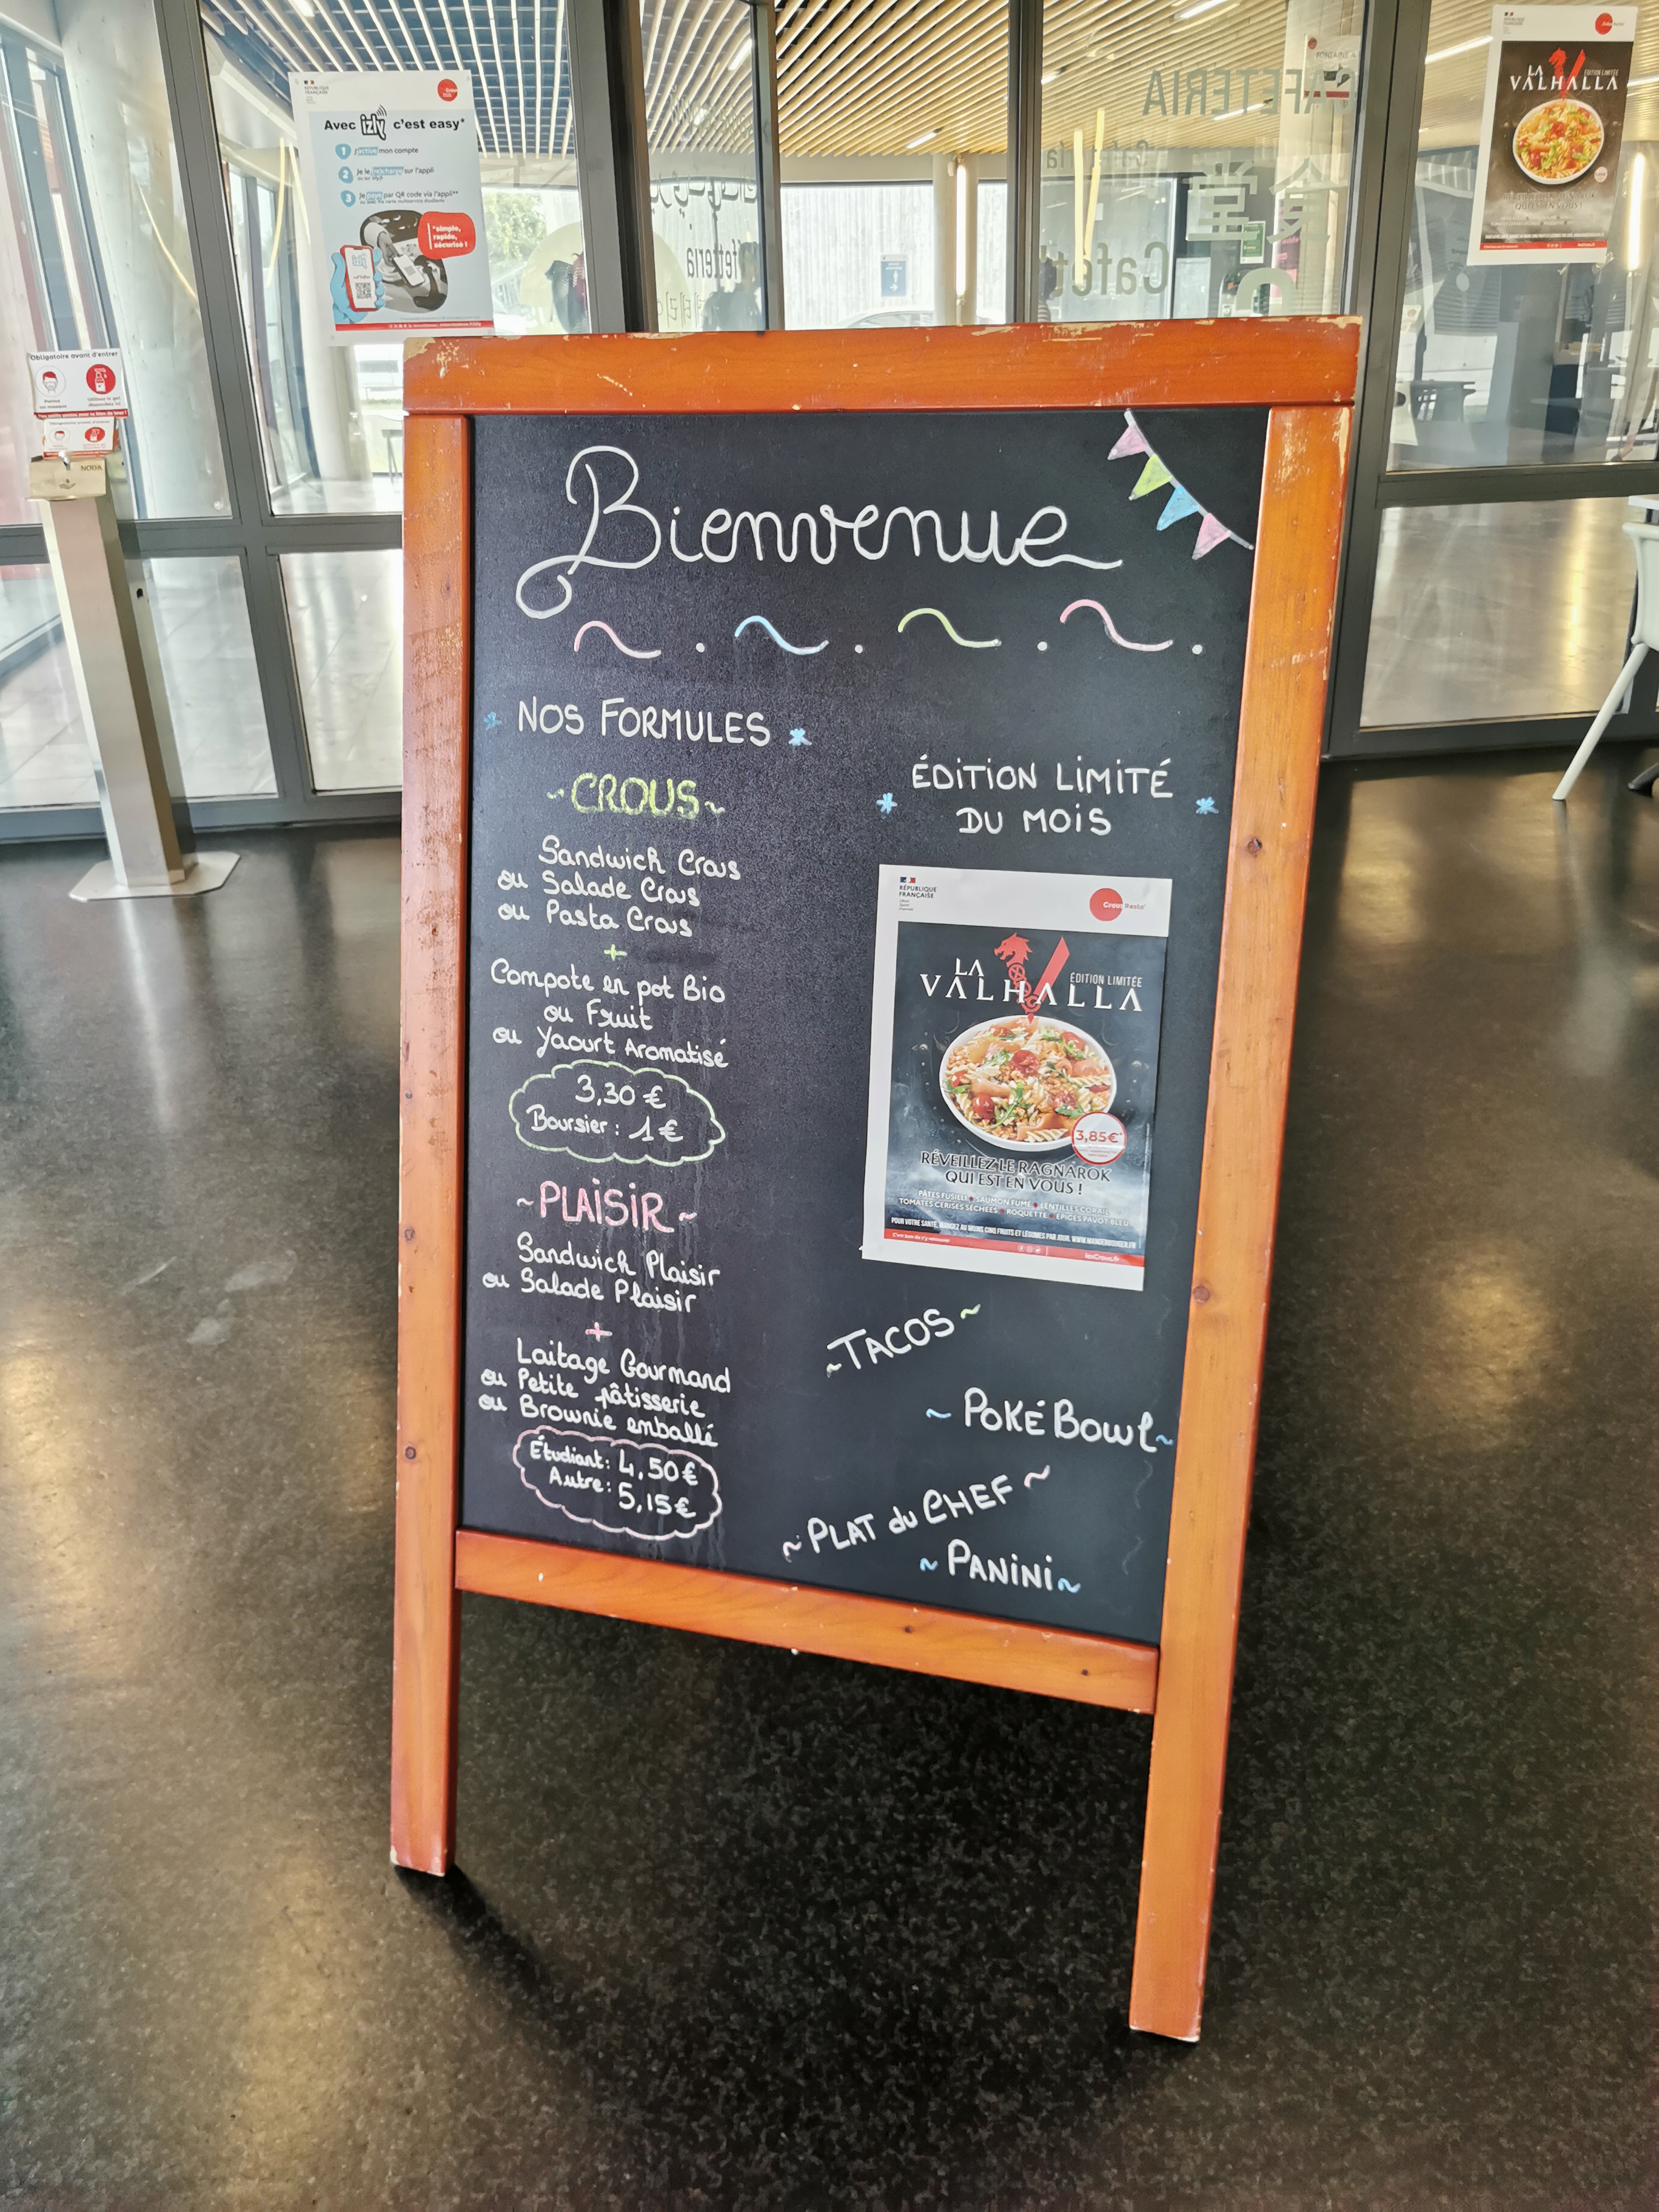 RÉPUBLIQUE
FRANÇAISE
Avec izly c'est easy*
1 J'active mon compte
2 Je le recharge sur l'appli
3 Je paye par QR code via l'appli**
*simple,
rapide,
sécurisé !
izly
Obligatoire avant d'entrer
NODA
CAFETERIA
Cafeteria
食堂
LA
VALHALLA
ÉDITION LIMITÉE
Bienvenue
NOS FORMULES
~CROUS~
Sandwich Crous
ou Salade Crous
ou Pasta Crous
+
Compote en pot Bio
ou Fruit
ou Yaourt Aromatisé
3,30 €
Boursier : 1 €
~PLAISIR~
Sandwich Plaisir
ou Salade Plaisir
+
Laitage Gourmand
ou Petite pâtisserie
ou Brownie emballé
Étudiant : 4,50 €
Autre : 5,15 €
ÉDITION LIMITÉ
DU MOIS
RÉPUBLIQUE
FRANÇAISE
Crous Resto'
LA
VALHALLA
ÉDITION LIMITÉE
3,85€
RÉVEILLEZ LE RAGNAROK
QUI EST EN VOUS !
PÂTES FUSILLI SAUMON FUMÉ LENTILLES CORAIL
TOMATES CERISES SÉCHÉES ROQUETTE ÉPICES PAVOT BLEU
POUR VOTRE SANTÉ, MANGEZ AU MOINS CINQ FRUITS ET LÉGUMES PAR JOUR. WWW.MANGERBOUGER.FR
lesCrous.fr
~TACOS~
~ POKÉ BOWL~
~ PLAT du CHEF ~
~ PANINI~